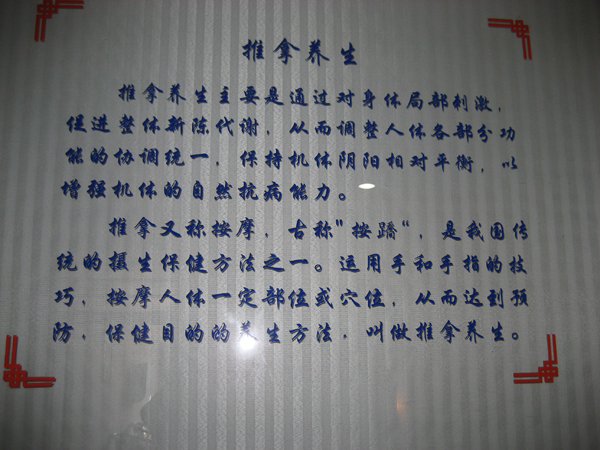 推拿养生
推拿养生主要是通过对身体局部刺激，
促进整体新陈代谢，从而调整人体各部分功
能的协调统一，保持机体阴阳相对平衡，以
增强机体的自然抗病能力。
推拿又称按摩，古称"按蹻"，是我国传
统的摄生保健方法之一。运用手和手指的技
巧，按摩人体一定部位或穴位，从而达到预
防，保健目的的养生方法，叫做推拿养生。